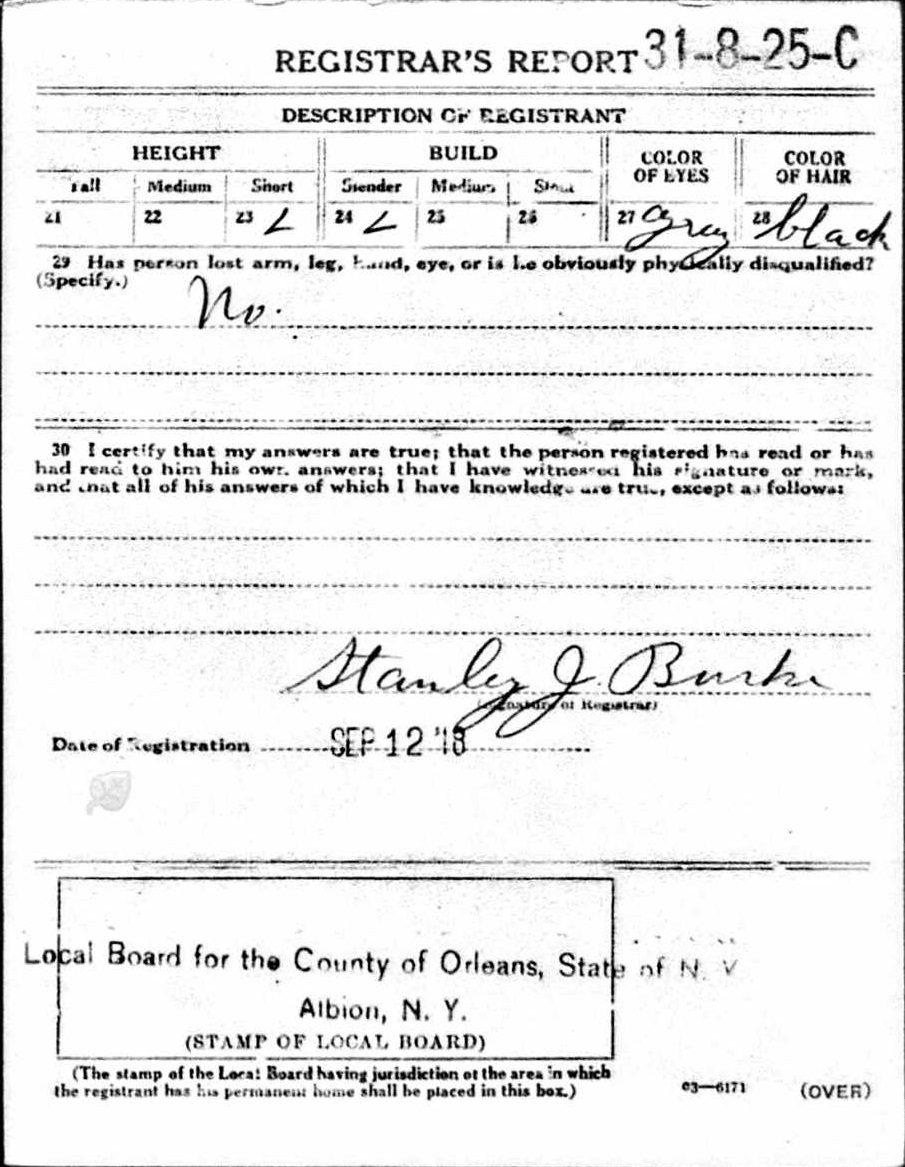 REGISTRAR'S REPORT 31-8-25-C
DESCRIPTION OF REGISTRANT
HEIGHT BUILD COLOR OF EYES COLOR OF HAIR
Tall Medium Short Slender Medium Stout
21 22 23 ✓ 24 ✓ 25 26 27 Gray 28 black
29 Has person lost arm, leg, hand, eye, or is he obviously physically disqualified?
(Specify.) No.
30 I certify that my answers are true; that the person registered has read or has
had read to him his own answers; that I have witnessed his signature or mark,
and that all of his answers of which I have knowledge are true, except as follows:
Stanley J. Burke
(Signature of Registrar)
Date of Registration SEP 12 '18
Local Board for the County of Orleans, State of N. Y
Albion, N. Y.
(STAMP OF LOCAL BOARD)
(The stamp of the Local Board having jurisdiction of the area in which
the registrant has his permanent home shall be placed in this box.)
03—6171 (OVER)